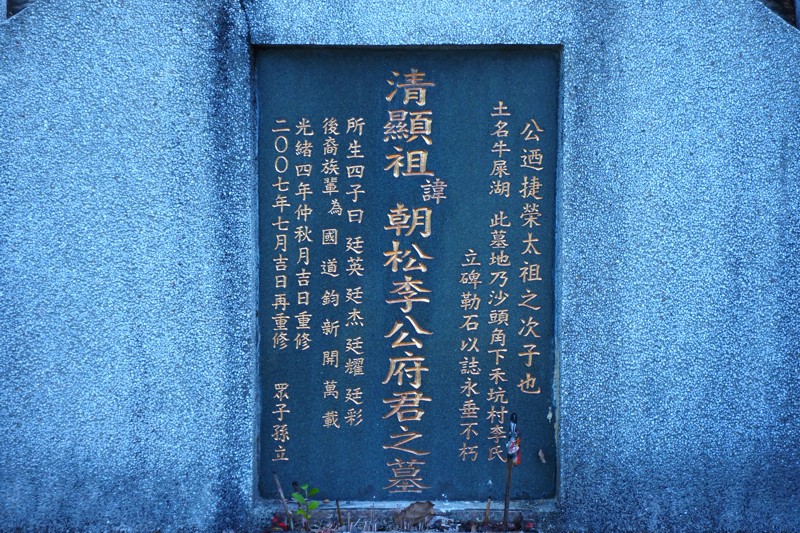 公迺捷榮太祖之次子也
土名牛屎湖 此墓地乃沙頭角下禾坑村李氏
立碑勒石以誌永垂不朽
清顯祖諱朝松李公府君之墓
所生四子曰 廷英 廷杰 廷耀 廷彩
後裔族輩為 國 道 鈞 新 開 萬 載
光緒四年仲秋月吉日重修
二〇〇七年七月吉日再重修 眾子孫立